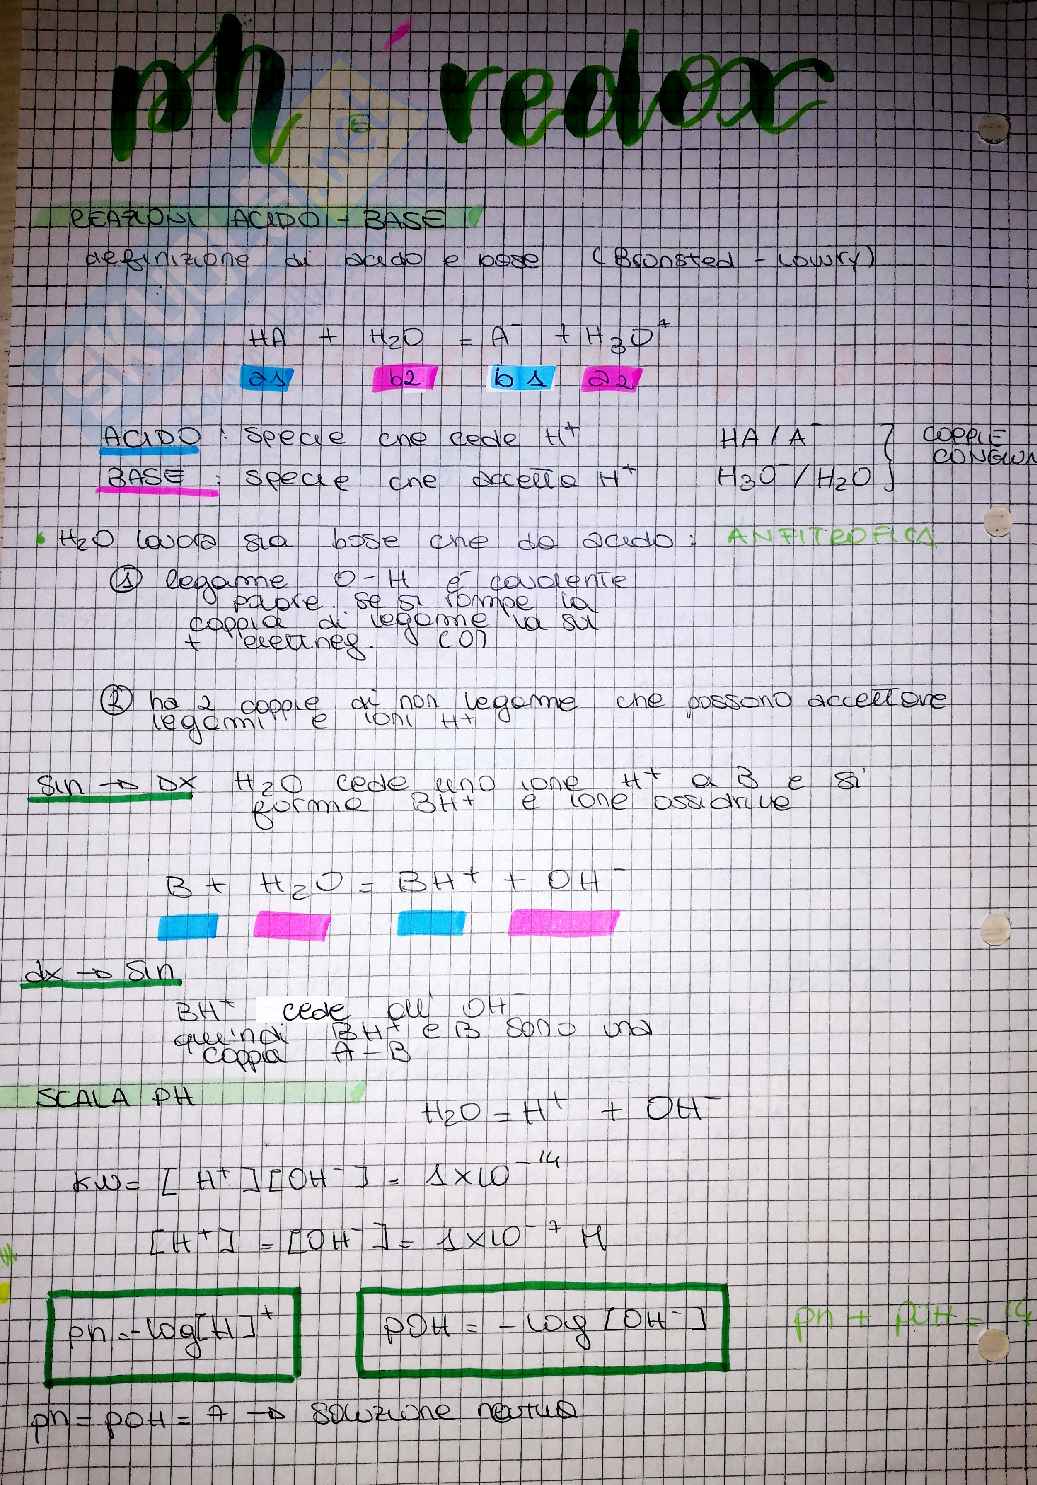 ph redox
SKUOLA.net
REAZIONI ACIDO - BASE
definizione di acido e base (Bronsted - Lowry)
HA + H₂O = A⁻ + H₃O⁺
a1 b2 b1 a2
ACIDO : specie che cede H⁺ HA / A⁻
BASE : specie che accetta H⁺ H₃O⁻/H₂O
COPPIE
• H₂O lavora sia base che da acido : ANFITROFICA
① legame O-H è covalente
se si rompe la
coppia di legame va su
+ elettneg. (O)
② ha 2 coppie di non legame che possono accettare
legami e ioni H⁺
Sin → Dx H₂O cede uno ione H⁺ a B e si
forma BH⁺ e ione ossidrile
B + H₂O = BH⁺ + OH⁻
dx → sin
BH⁺ cede all' OH⁻
quindi BH⁺ e B sono una
coppia A-B
SCALA PH
H₂O = H⁺ + OH⁻
KW = [H⁺][OH⁻] = 1x10⁻¹⁴
[H⁺] = [OH⁻] = 1x10⁻⁷ M
pH = -log[H]⁺ pOH = -log[OH⁻] pH + pOH = 14
pH = pOH = 7 → soluzione neutra